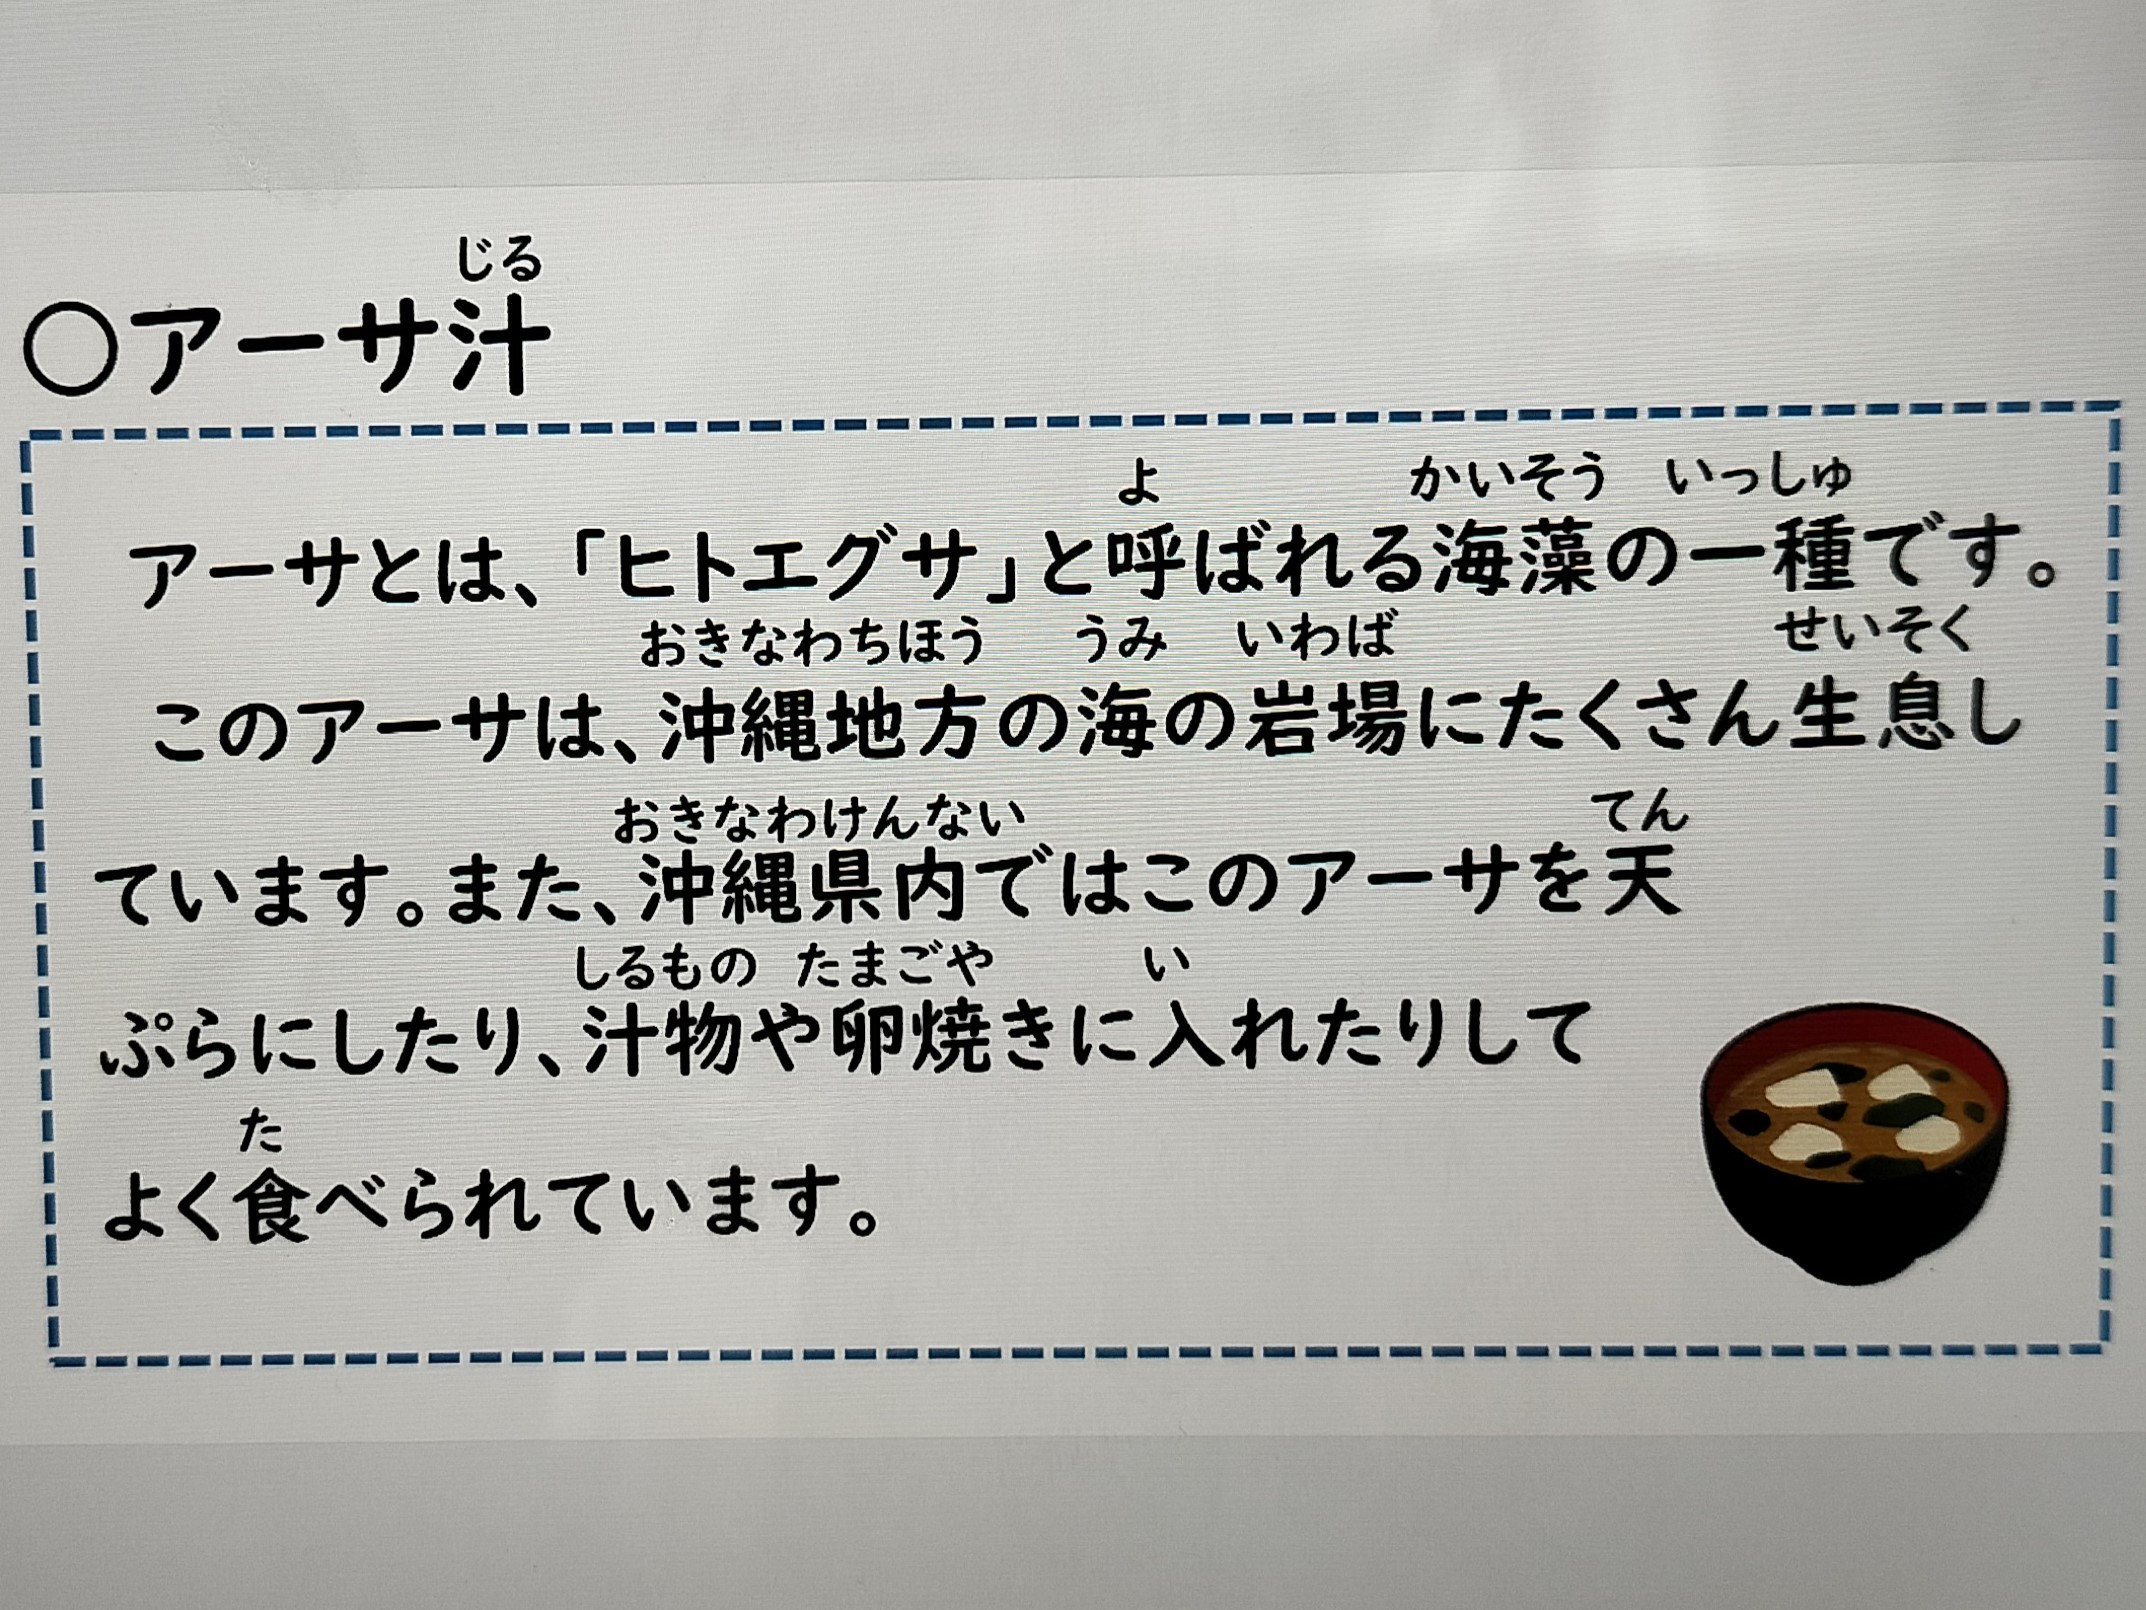 じる
○アーサ汁
よ かいそう いっしゅ
アーサとは、「ヒトエグサ」と呼ばれる海藻の一種です。
おきなわちほう うみ いわば せいそく
このアーサは、沖縄地方の海の岩場にたくさん生息し
おきなわけんない てん
ています。また、沖縄県内ではこのアーサを天
しるもの たまごや い
ぷらにしたり、汁物や卵焼きに入れたりして
た
よく食べられています。